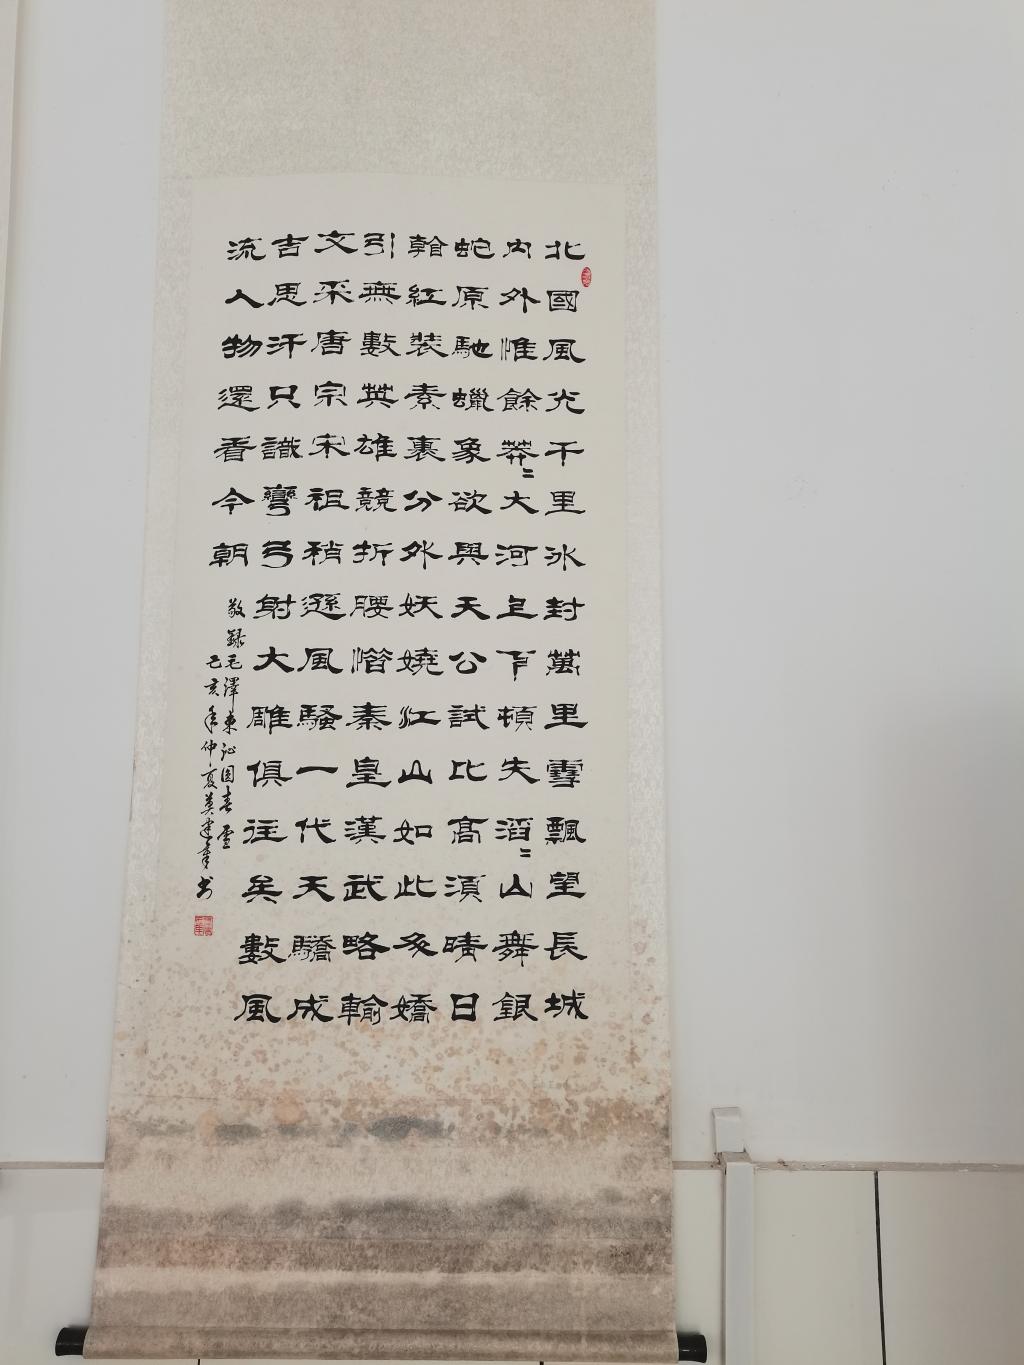 北國風光千里冰封萬里雪飄望長城
內外惟餘莽〻大河上下頓失滔〻山舞銀
蛇原馳蠟象欲與天公試比高須晴日
看紅裝素裹分外妖嬈江山如此多嬌
引無數英雄競折腰惜秦皇漢武略輸
文采唐宗宋祖稍遜風騷一代天驕成
吉思汗只識彎弓射大雕俱往矣數風
流人物還看今朝
敬錄毛澤東沁園春雪
己亥年仲夏莫建章书